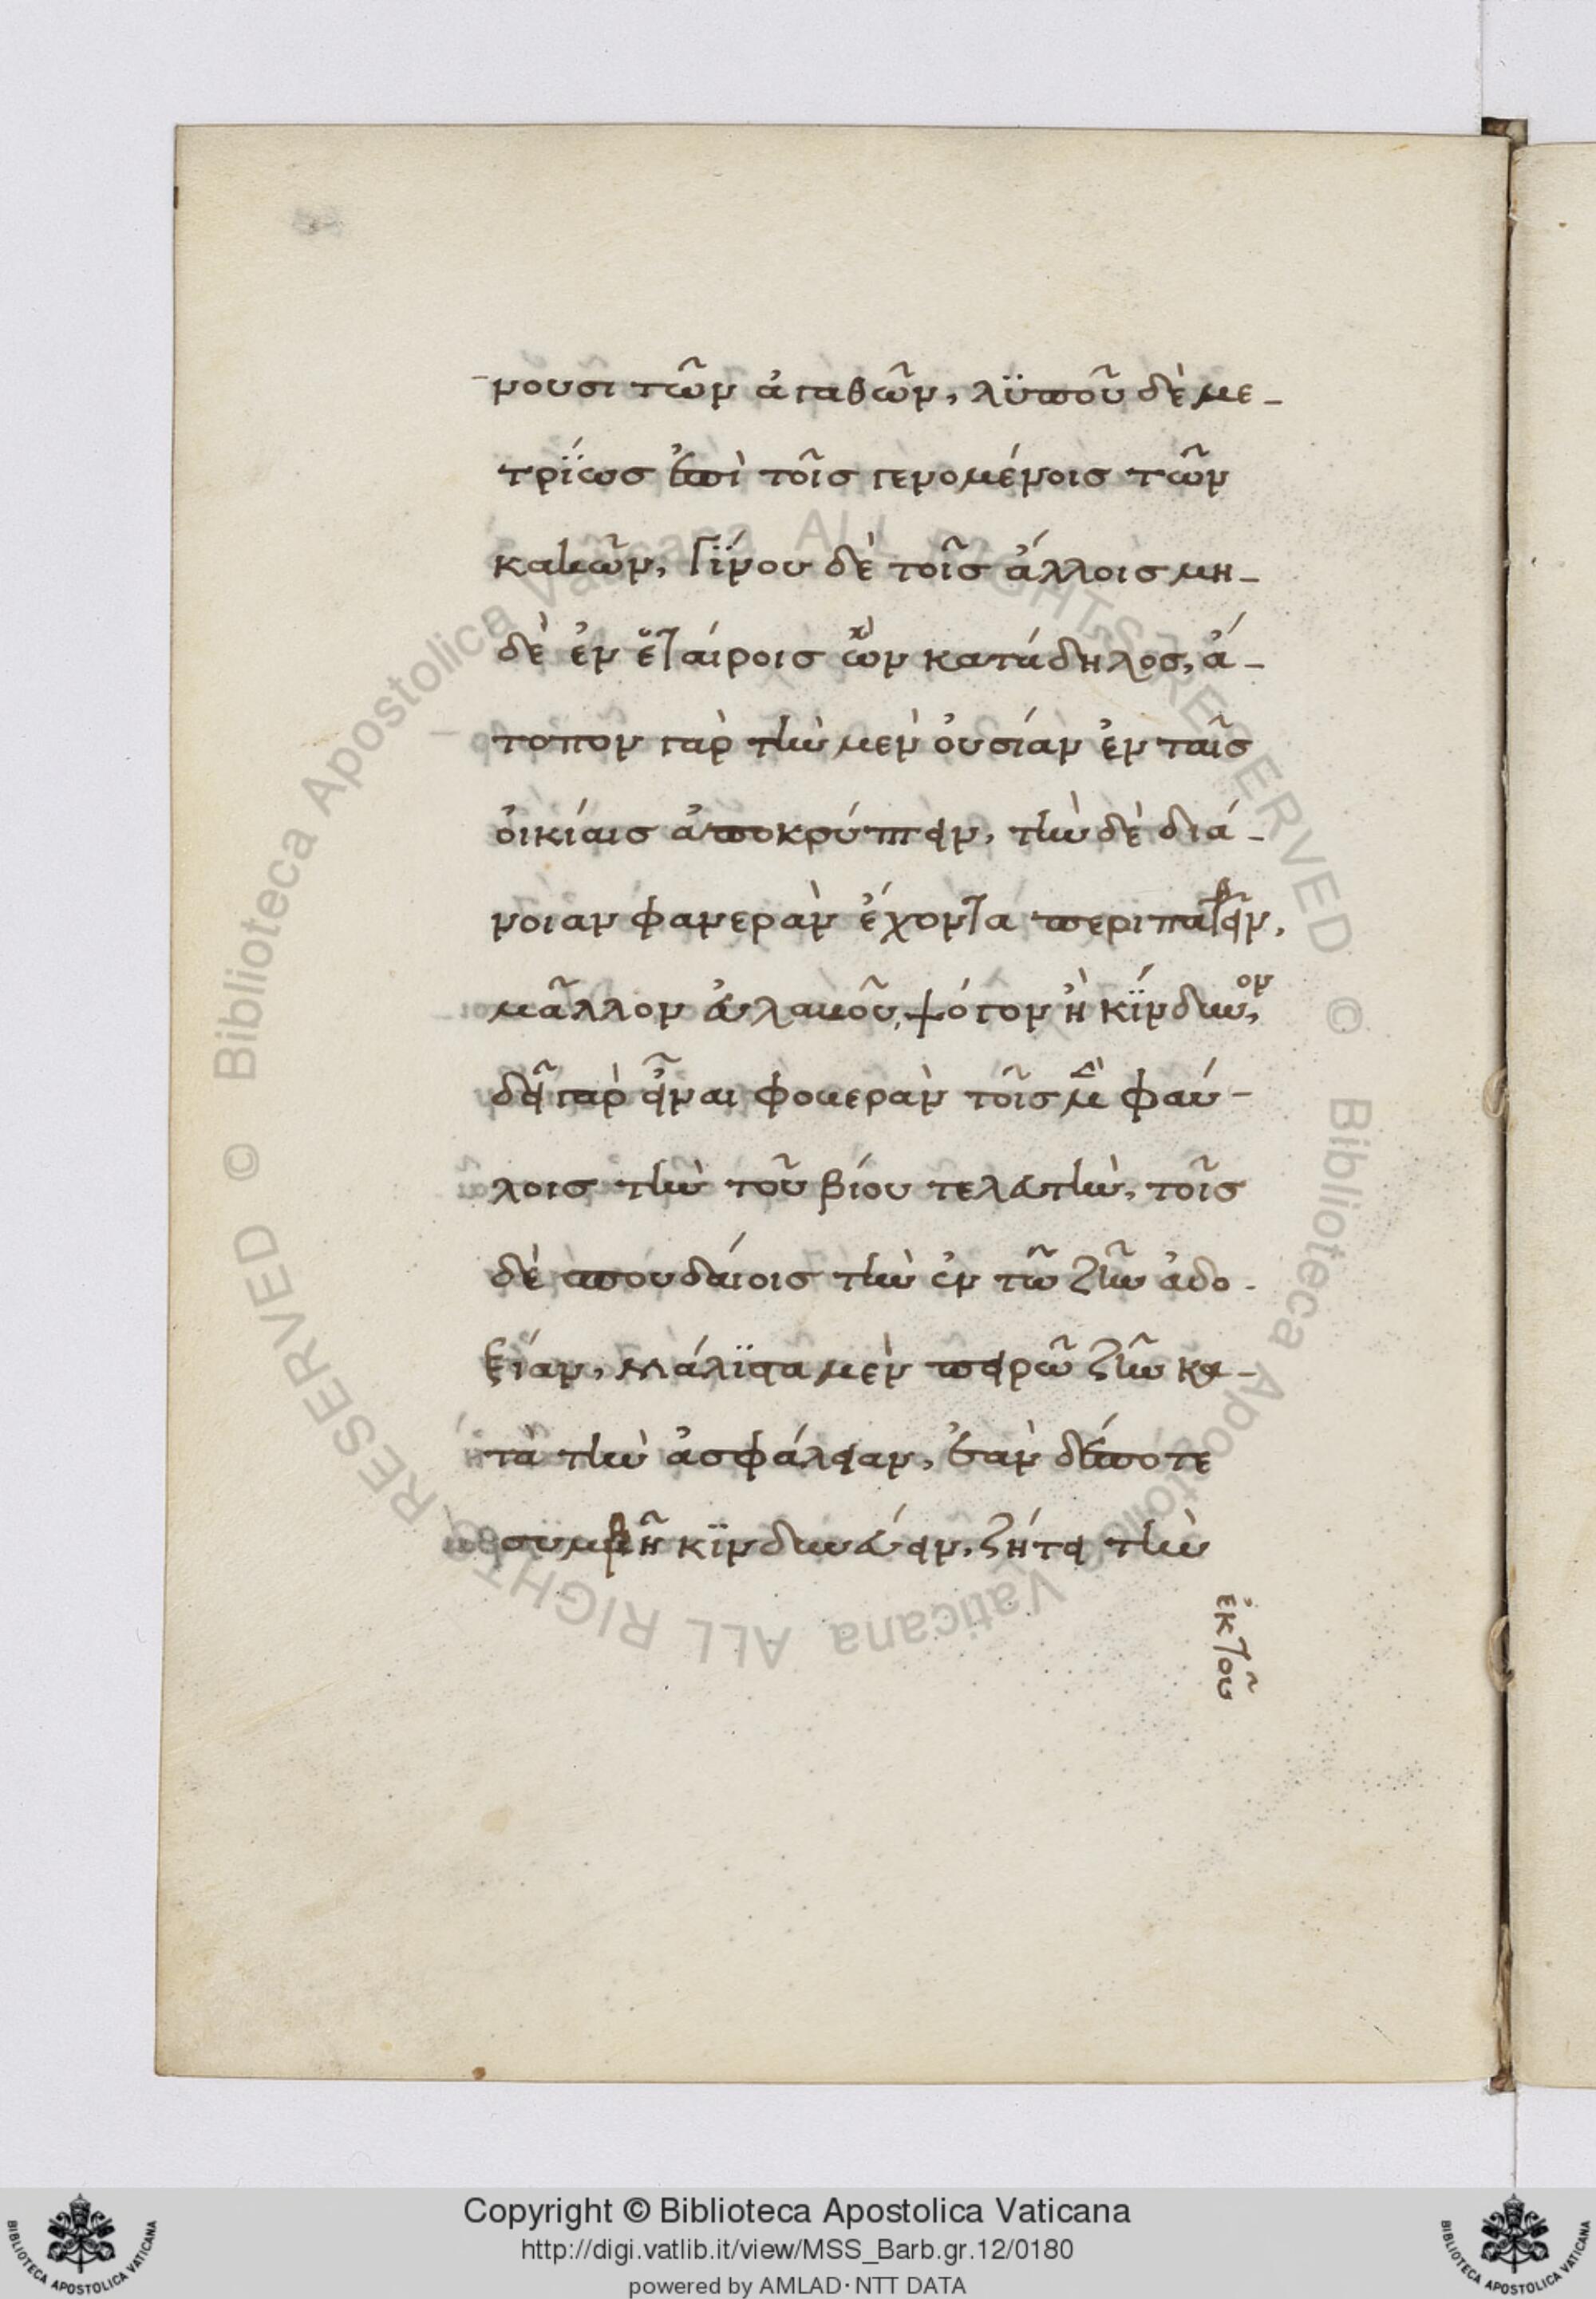 -νουσι τῶν ἀγαθῶν, λϋποῦ δὲ με-
τρΐως ἐπὶ τοῖς γενομένοις τῶν
κακῶν, Γΐνου δὲ τοῖς ἄλλοις μη-
δὲ ἐν ἑταίροις ὢν κατάδηλος, ἄ-
τοπον γὰρ τὴν μὲν ὀυσίαν ἐν ταῖς
ὀικίαις ἀποκρύπτειν, τὴν δὲ διά-
νοιαν φανερὰν ἔχοντα περιπατεῖν,
μᾶλλον ἐυλαβοῦ ψόγον ἢ κΐνδυνον,
δεῖ γὰρ εἶναι φοβερὰν τοῖς μὲν φαύ-
λοις τὴν τοῦ βίου τελευτὴν, τοῖς
δὲ σπουδάιοις τὴν ἐν τῶ ζῆν ἀδο-
ξίαν, μάλϊστα μὲν πειρῶ ζῆν κα-
τὰ τὴν ἀσφάλειαν, ἐὰν δέ ποτε
συμβῆ κϊνδυνέυειν, ζήτει τὴν
ἐκ τοῦ
Copyright © Biblioteca Apostolica Vaticana
http://digi.vatlib.it/view/MSS_Barb.gr.12/0180
powered by AMLAD·NTT DATA
BIBLIOTECA APOSTOLICA VATICANA
BIBLIOTECA APOSTOLICA VATICANA
© Biblioteca Apostolica Vaticana ALL RIGHTS RESERVED © Biblioteca Apostolica Vaticana ALL RIGHTS RESERVED